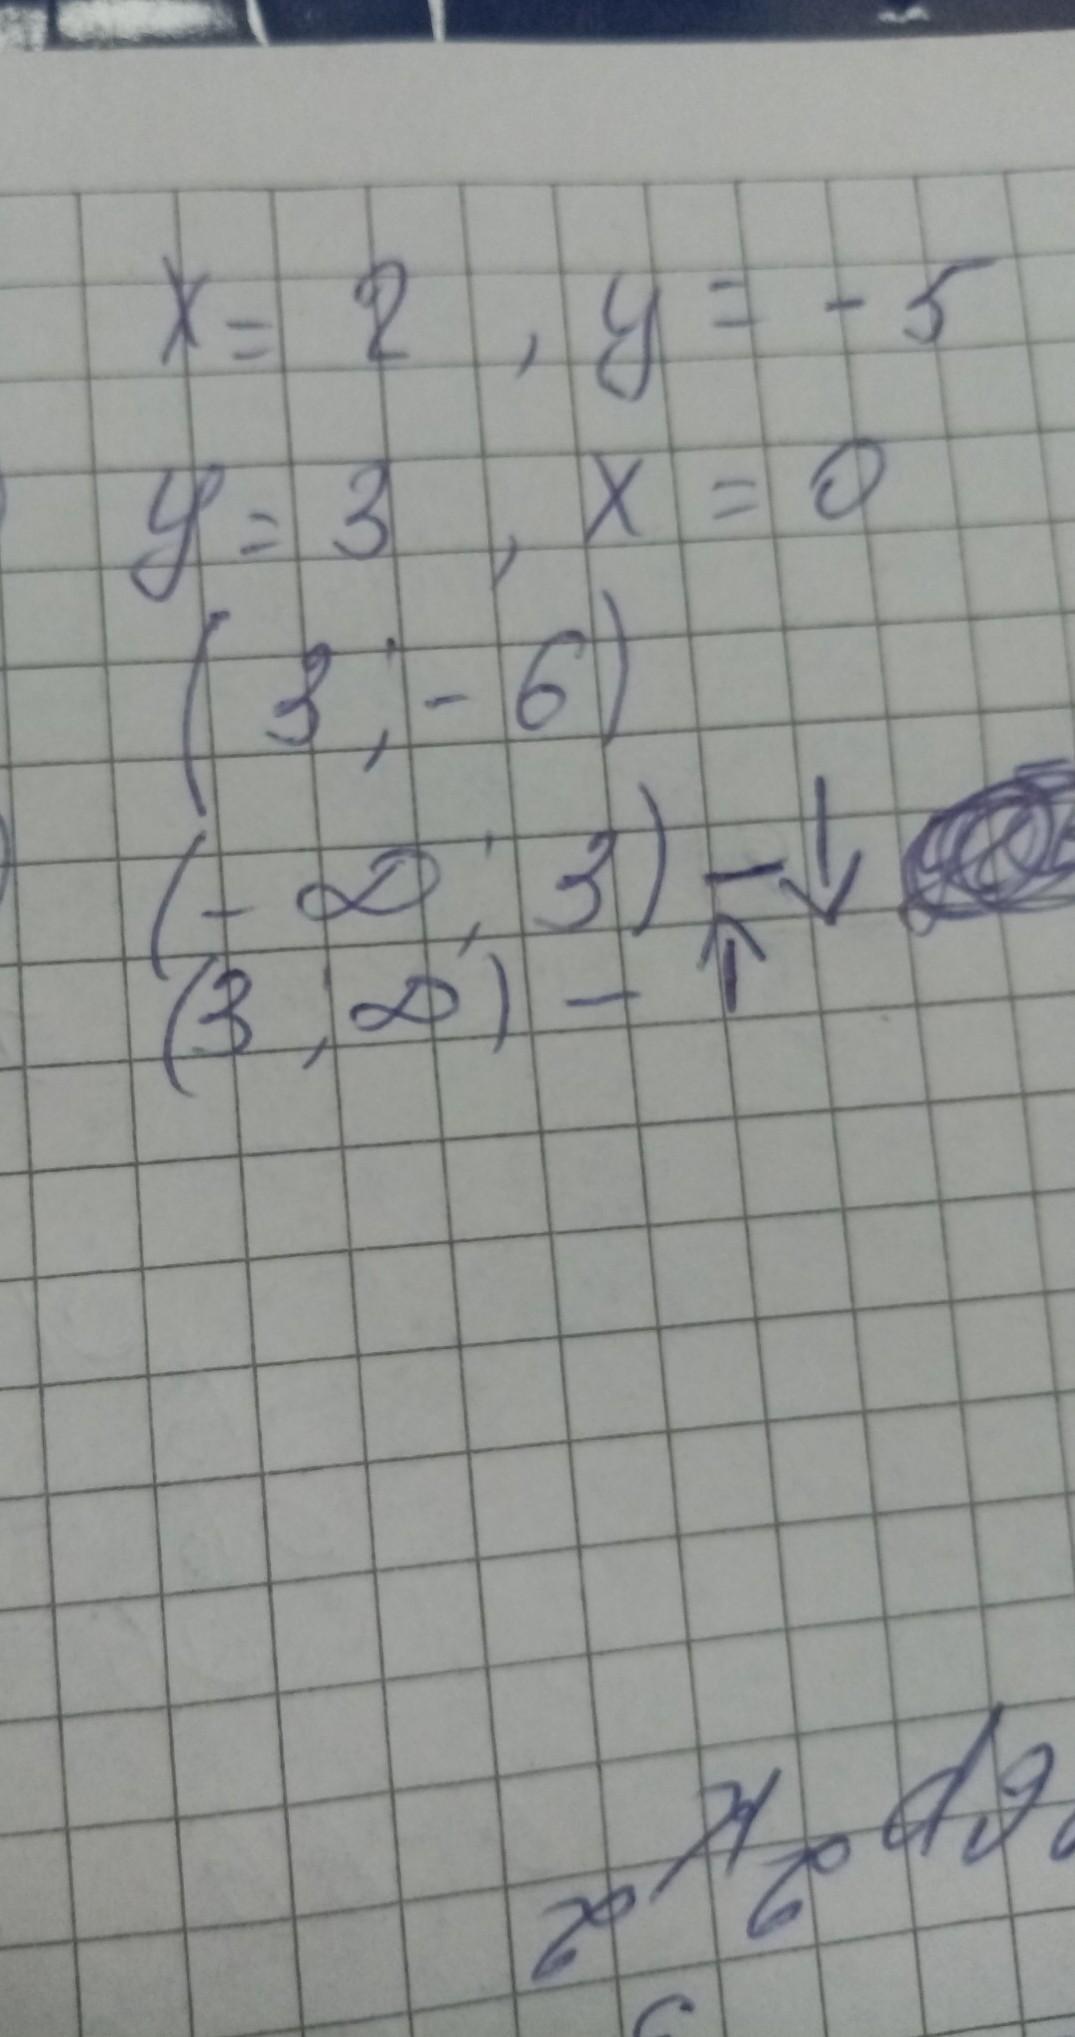 x = 2 , y = - 5
y = 3 , x = 0
( 3 ; - 6 )
( - ∞ ; 3 ) - ↓
( 3 ; ∞ ) - ↑